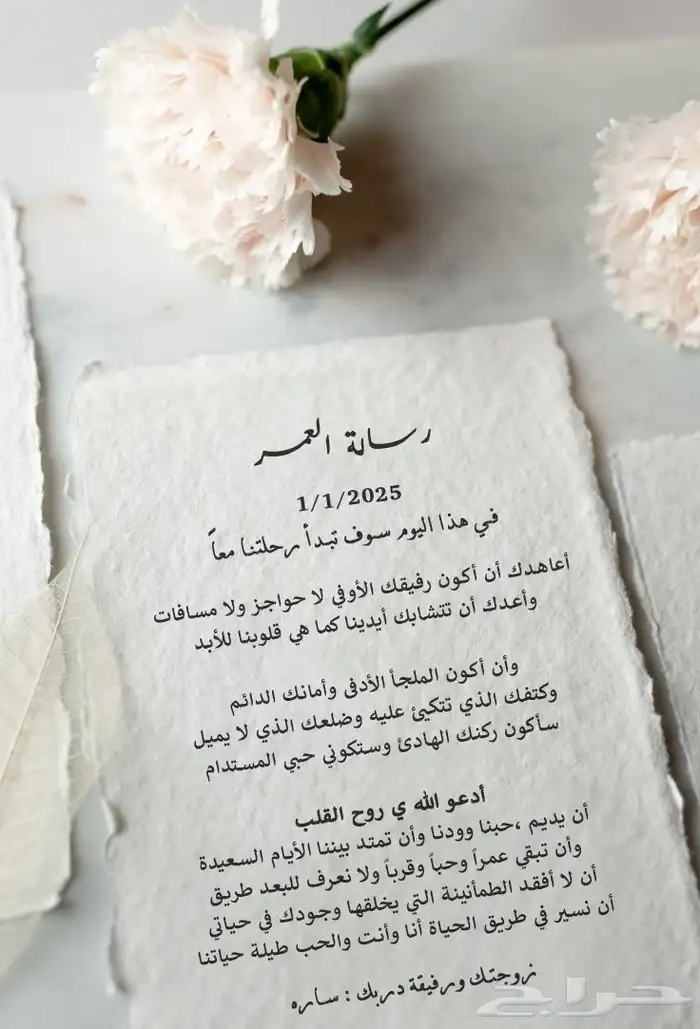 رسالة العمر
1/1/2025
في هذا اليوم سوف تبدأ رحلتنا معاً
أعاهدك أن أكون رفيقك الأوفي لا حواجز ولا مسافات
وأعدك أن تتشابك أيدينا كما هي قلوبنا للأبد
وأن أكون الملجأ الأدفى وأمانك الدائم
وكتفك الذي تتكيئ عليه وضلعك الذي لا يميل
سأكون ركنك الهادئ وستكوني حبي المستدام
أدعو الله ي روح القلب
أن يديم ،حبنا وودنا وأن تمتد بيننا الأيام السعيدة
وأن تبقي عمراً وحباً وقرباً ولا نعرف للبعد طريق
أن لا أفقد الطمأنينة التي يخلقها وجودك في حياتي
أن نسير في طريق الحياة أنا وأنت والحب طيلة حياتنا
زوجتك ورفيقة دربك : ساره
حراج